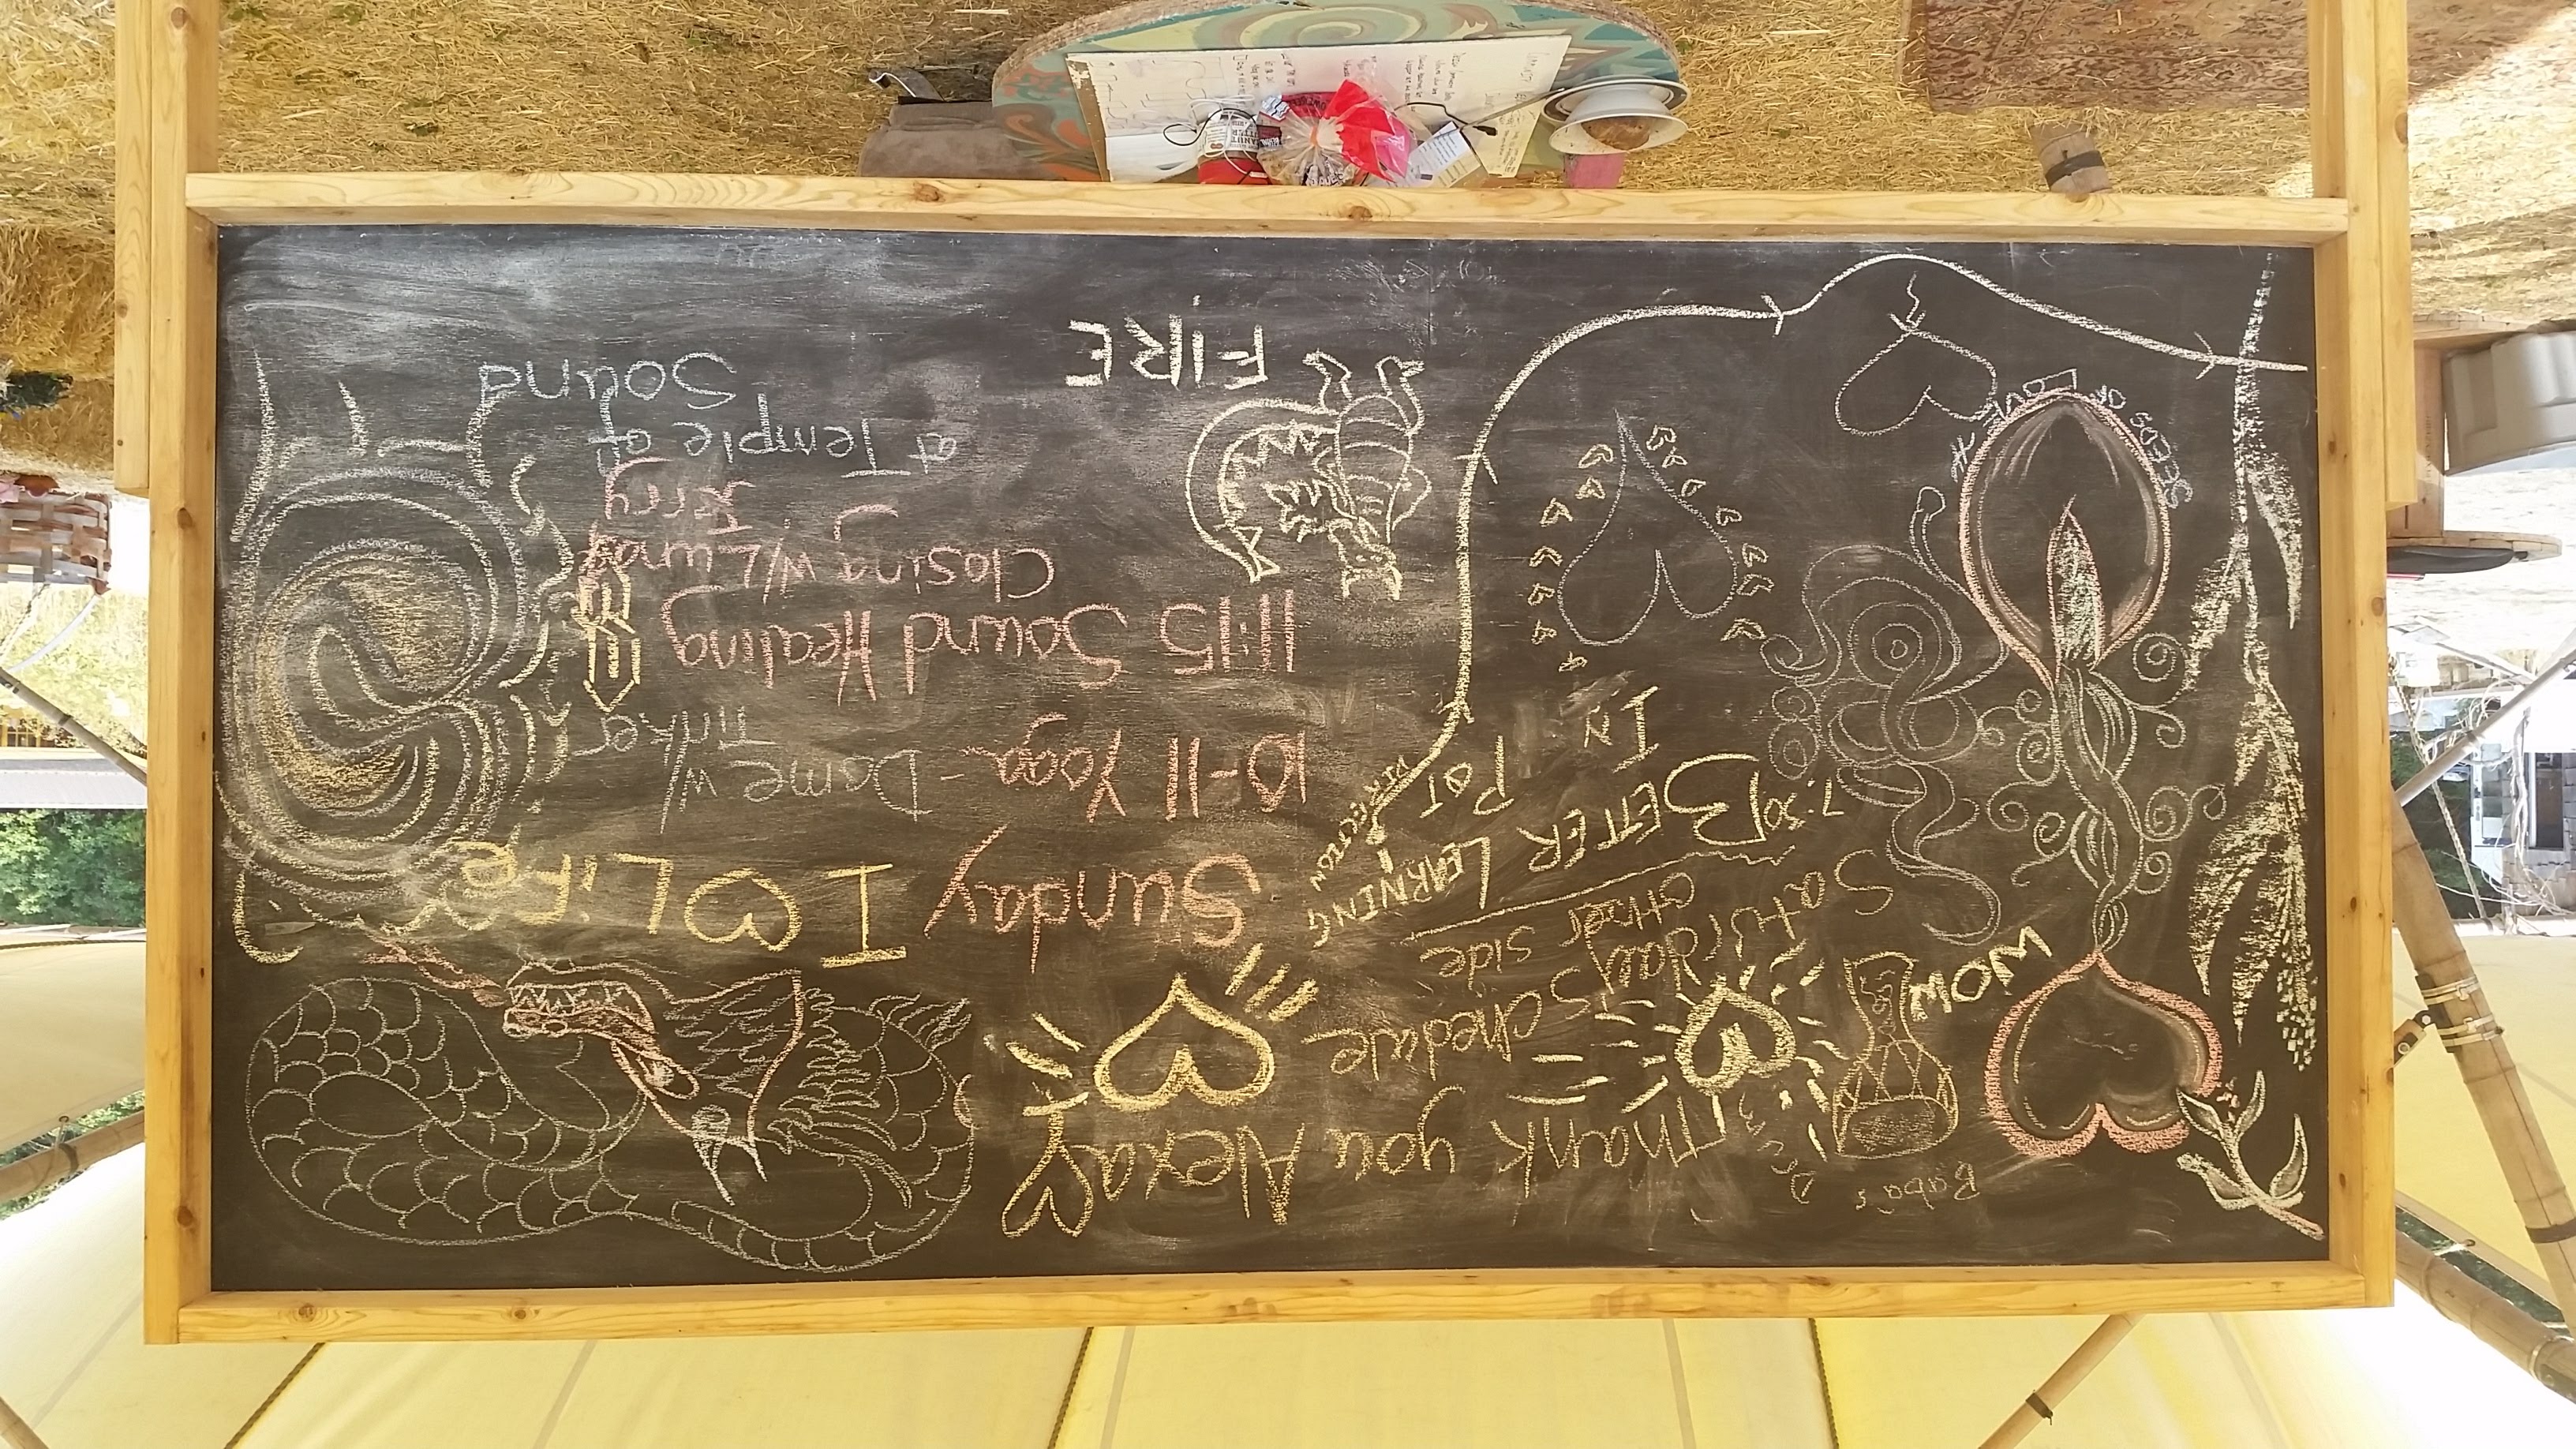 Baba's
Thank you Alexa
WOW
Saturday's Schedule
other side
7:30 BETTER LEARNING
IN POT
Sunday
I ♡ LiFe
10-11 Yoga - Dome w/
Tinker
11:15 Sound Healing
Closing w/ Luna &
Jerry
at Temple of
Sound
SEEDS OF LOVE
FIRE
PEANUT